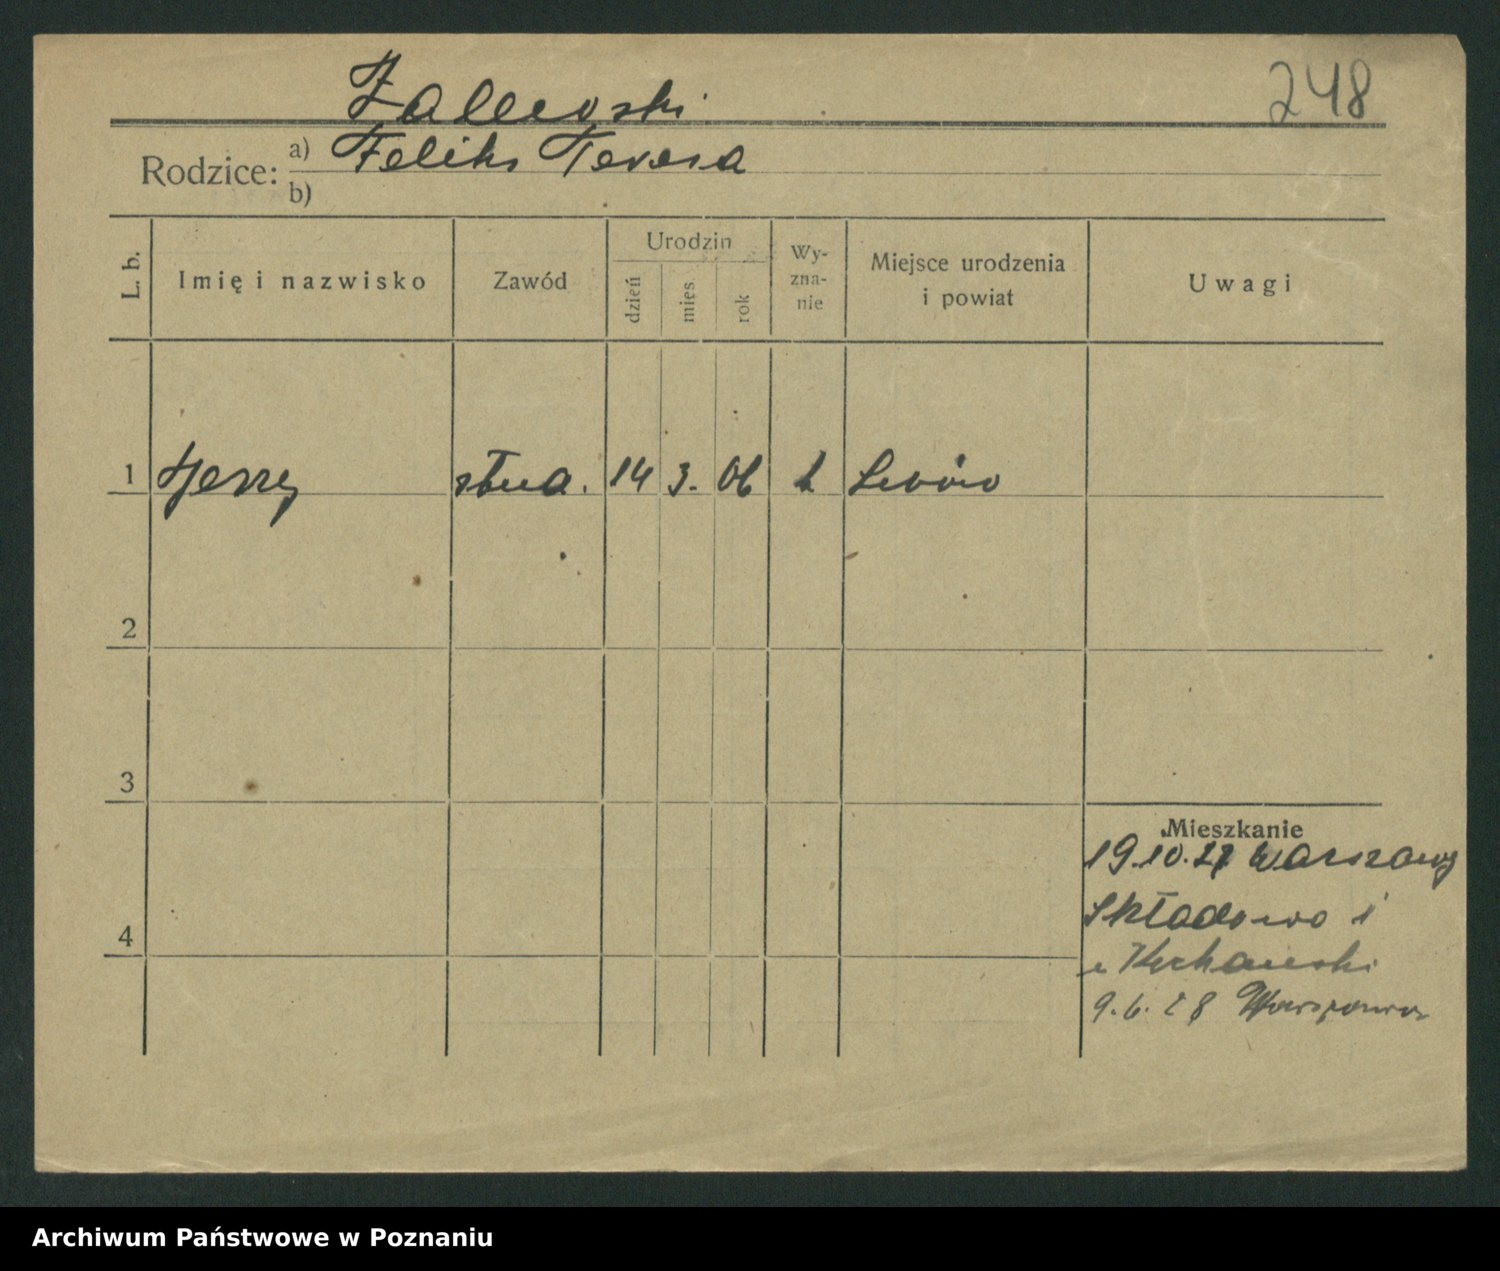 Zalewski
248
Rodzice: a) Feliks Teresa
b)
L. b.
Imię i nazwisko
Zawód
Urodzin
dzień
mies
rok
Wy-
zna-
nie
Miejsce urodzenia
i powiat
Uwagi
1 Jerzy stud. 14 3. 06 k Lwów
2
3
4
Mieszkanie
19.10.27 Warszawy
Składowa 1
u
9.6.28 Warszawa
Archiwum Państwowe w Poznaniu